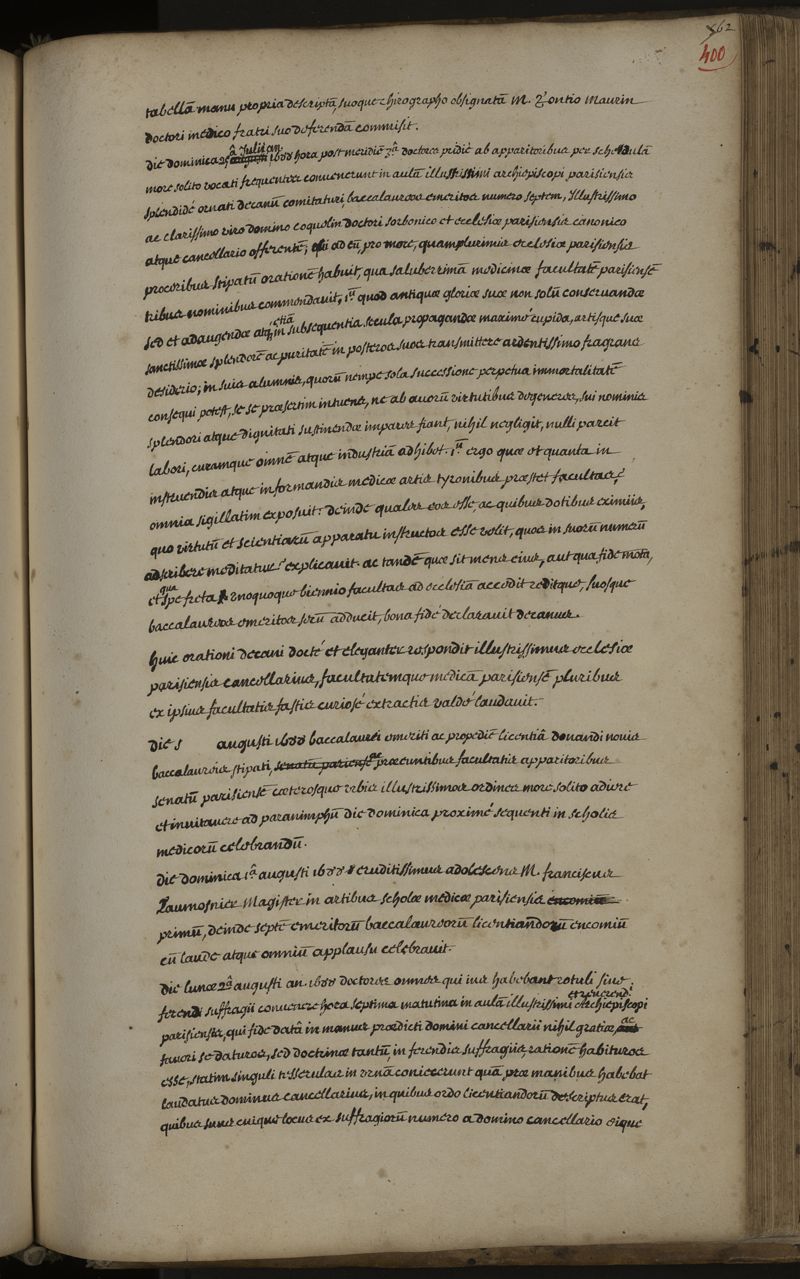 562
400
tabellā manu propria descriptā, suoque chirographo obsignatā M. Maurin
doctori medico fratri suo deferendā commisit.
die dominica Julii an. 1688 hora post meridiē 3ᵃ doctores pridiè ab apparitoribus per schedulā
more solito vocati frequentes convenerunt in aulā illustrissimi archiepiscopi parisiensis
splendidè ornati decanū comitaturi baccalaureos emeritos numero septem, Illustrissimo
ac clarissimo viro domino coquelin doctori sorbonico et ecclesiæ parisiensis canonico
atque cancellario offerentē; ad eū, pro more, quamplurimis ecclesiæ parisiensis
proceribus stipatū orationē habuit, qua saluberrimā medicinæ facultatē parisiensē
tribus nominibus commendavit, 1ᵘ quod antiquæ gloriæ suæ non solū conservandæ
sed et adaugendæ atq; etiā in subsequentia secula propagandæ maximè cupida, artisque suæ
sanctissimæ splendorē ac puritatē in posteros suos transmittere ardentissimo flagrans
desiderio; in suis alumnis, quorū nempe sola successione perpetua immortalitatē
consequi potest, se se præsertim intuens, ne ab avorū virtutibus degeneres, sui nominis
splendori atque dignitati sustinendæ impares fiant, nihil negligit, nulli parcit
labori, curamque omnē atque industriā adhibet. 1ᵘ ergo quæ et quanta in
instruendis atque informandis medicæ artis tyronibus præstet facultas,
omnia sigillatim exposuit: deinde quales eos esse, ac quibus dotibus eximiis,
quo virtutū et scientiarū apparatu instructos esse velit, quos in suorū numerū
adscribere meditatur explicavit. ac tandē quæ sit mens eius, aut qua fide mota,
et qua spe freta unoquoque biennio facultas ad ecclesiā accedit reditque, suosque
baccalaureos emeritos secū adducit, bona fide declaravit decanus.
huic orationi decani doctè et eleganter respondit illustrissimus ecclesiæ
parisiensis cancellarius, facultatemque medicā parisiensē pluribus
ex ipsius facultatis fastis curiosè extractis valdè laudavit.
die augusti 1688 baccalaurei emeriti ac propediē licentiâ donandi novis
baccalaureis stipati, senatū parisiensē præeuntibus facultatis apparitoribus
senatū parisiensē cæterosque urbis illustrissimos ordines more solito adiere
et invitavere ad paranimphū die dominica proximè sequenti in scholis
medicorū celebrandū.
die dominica 1ᵃ augusti 1688 eruditissimus adolescens M. franciscus
Magister in artibus scholæ medicæ parisiensis encomiū
primū, deinde septē emeritorū baccalaureorū licentiandorū encomiū
cū laude atque omniū applausu celebravit.
die lunæ 2ᵃ augusti an. 1688 doctores omnes qui ius habebant rotuli sive
ferendi suffragii convenere hora septima matutina in aulā illustrissimi et reverend. archiepiscopi
parisiensis, qui fide datâ in manus prædicti domini cancellarii nihil gratiæ ac
favori se daturos, sed doctrinæ tantū, in ferendis suffragiis rationē habituros
esse, statim singuli tesserulas in urnā coniecerunt quā præ manibus habebat
laudatus dominus cancellarius, in quibus ordo licentiandorū descriptus erat,
quibus suus cuique locus ex suffragiorū numero a domino cancellario eique